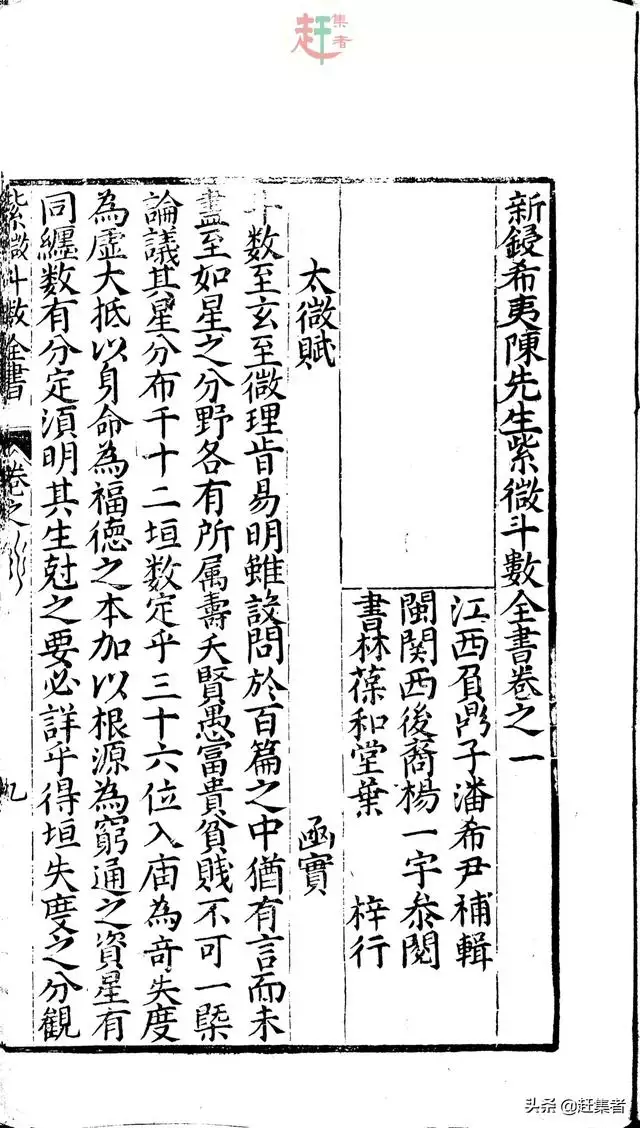 赶集者
新鋟希夷陳先生紫微斗數全書卷之一
江西負鼎子潘希尹補輯
閩關西後裔楊一宇叅閱
書林葆和堂葉　梓行
太微賦　函實
斗数至玄至微理肯易明雖設問於百篇之中猶有言而未
盡至如星之分野各有所属壽夭賢愚富貴貧賤不可一槩
論議其星分布千十二垣数定乎三十六位入庙為奇失度
為虛大抵以身命為福德之本加以根源為窮通之資星有
同纏数有分定湏明其生尅之要必詳乎得垣失度之分觀
紫微斗數全書　卷之　九
头条 @赶集者